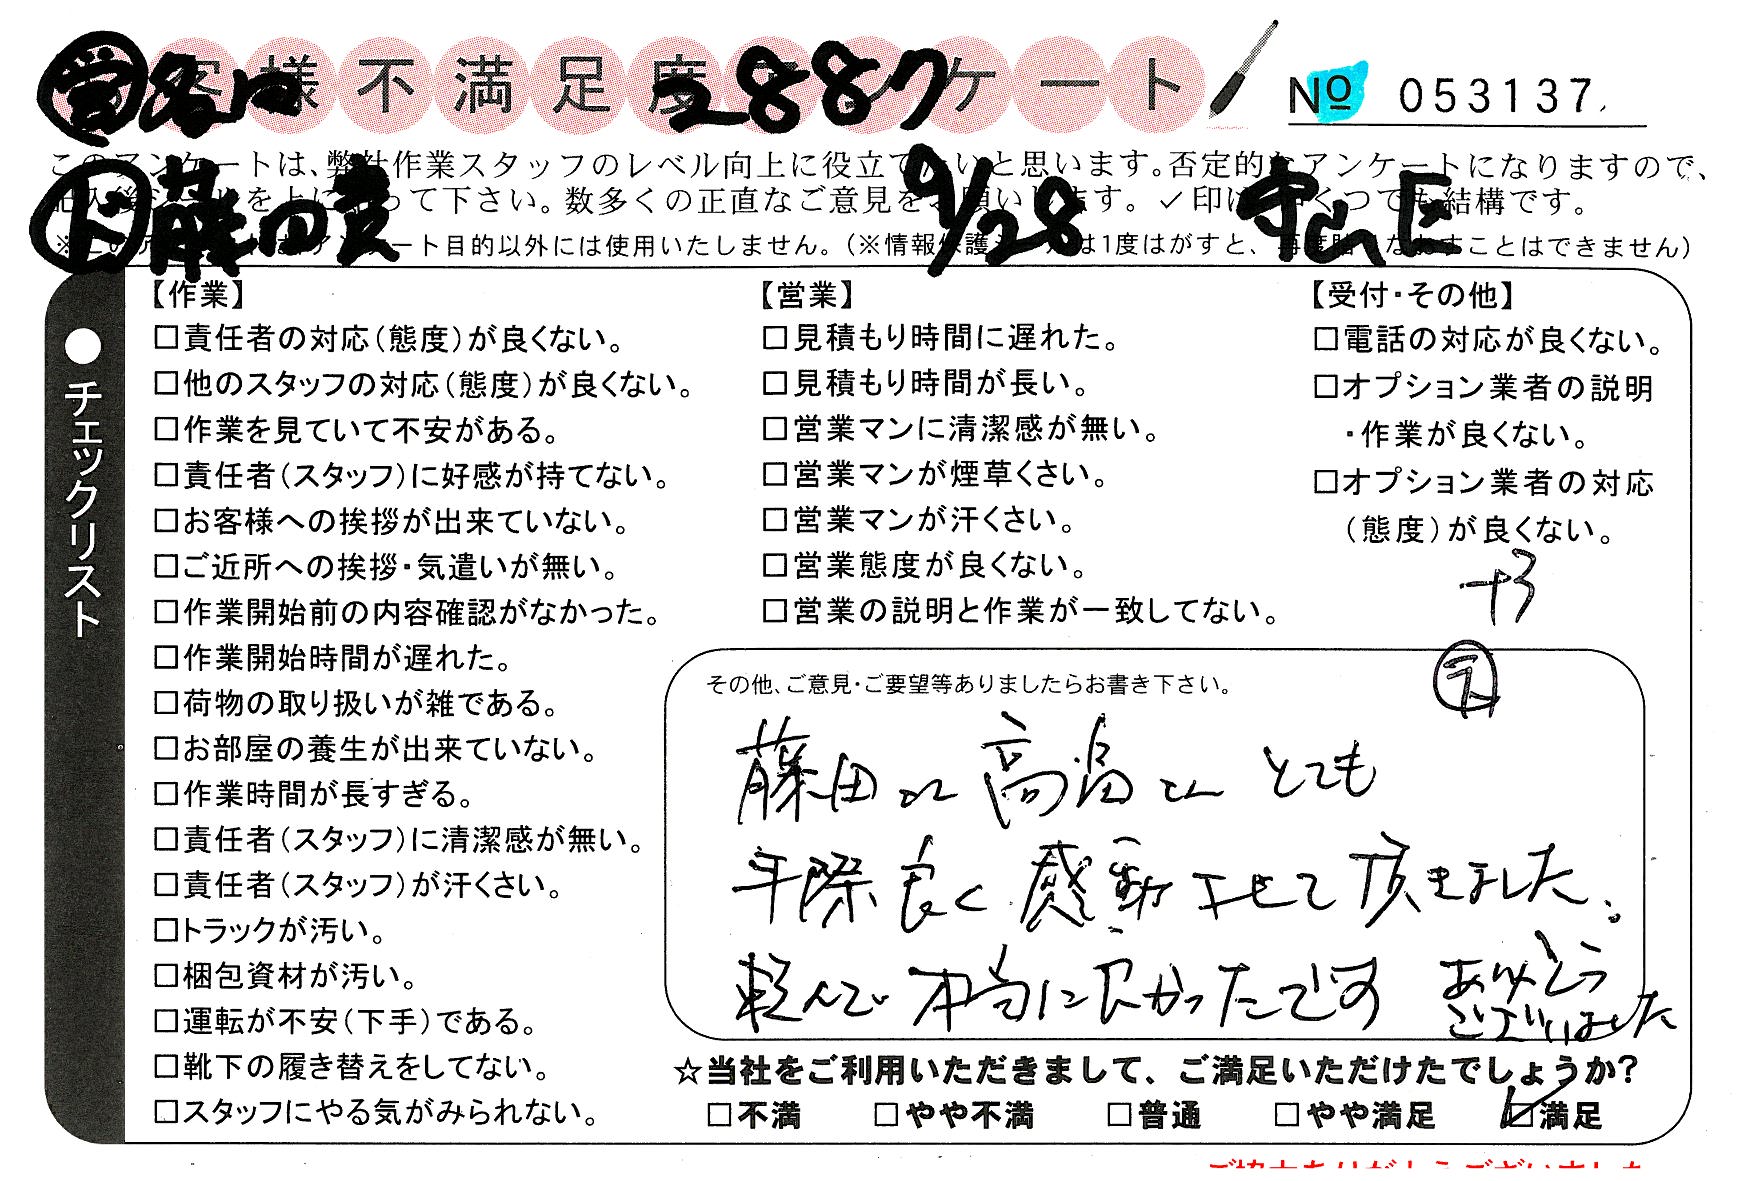 客様不満足度 ケート
No 053137
2887
9/28
このアンケートは、弊社作業スタッフのレベル向上に役立てたいと思います。否定的なアンケートになりますので、
って下さい。数多くの正直なご意見をお願いします。✓印はいくつでも結構です。
アンケート目的以外には使用いたしません。（※情報保護シールは1度はがすと、再度貼りなおすことはできません）
●チェックリスト
【作業】
□責任者の対応（態度）が良くない。
□他のスタッフの対応（態度）が良くない。
□作業を見ていて不安がある。
□責任者（スタッフ）に好感が持てない。
□お客様への挨拶が出来ていない。
□ご近所への挨拶・気遣いが無い。
□作業開始前の内容確認がなかった。
□作業開始時間が遅れた。
□荷物の取り扱いが雑である。
□お部屋の養生が出来ていない。
□作業時間が長すぎる。
□責任者（スタッフ）に清潔感が無い。
□責任者（スタッフ）が汗くさい。
□トラックが汚い。
□梱包資材が汚い。
□運転が不安（下手）である。
□靴下の履き替えをしてない。
□スタッフにやる気がみられない。
【営業】
□見積もり時間に遅れた。
□見積もり時間が長い。
□営業マンに清潔感が無い。
□営業マンが煙草くさい。
□営業マンが汗くさい。
□営業態度が良くない。
□営業の説明と作業が一致してない。
【受付・その他】
□電話の対応が良くない。
□オプション業者の説明
・作業が良くない。
□オプション業者の対応
（態度）が良くない。
+3
その他、ご意見・ご要望等ありましたらお書き下さい。
藤田さん 高畠さん とても
手際良く 感動させて頂きました。
頼んで 本当に良かったです ありがとう
ございました
☆当社をご利用いただきまして、ご満足いただけたでしょうか？
□不満 □やや不満 □普通 □やや満足 ☑満足
ご協力ありがとうございました